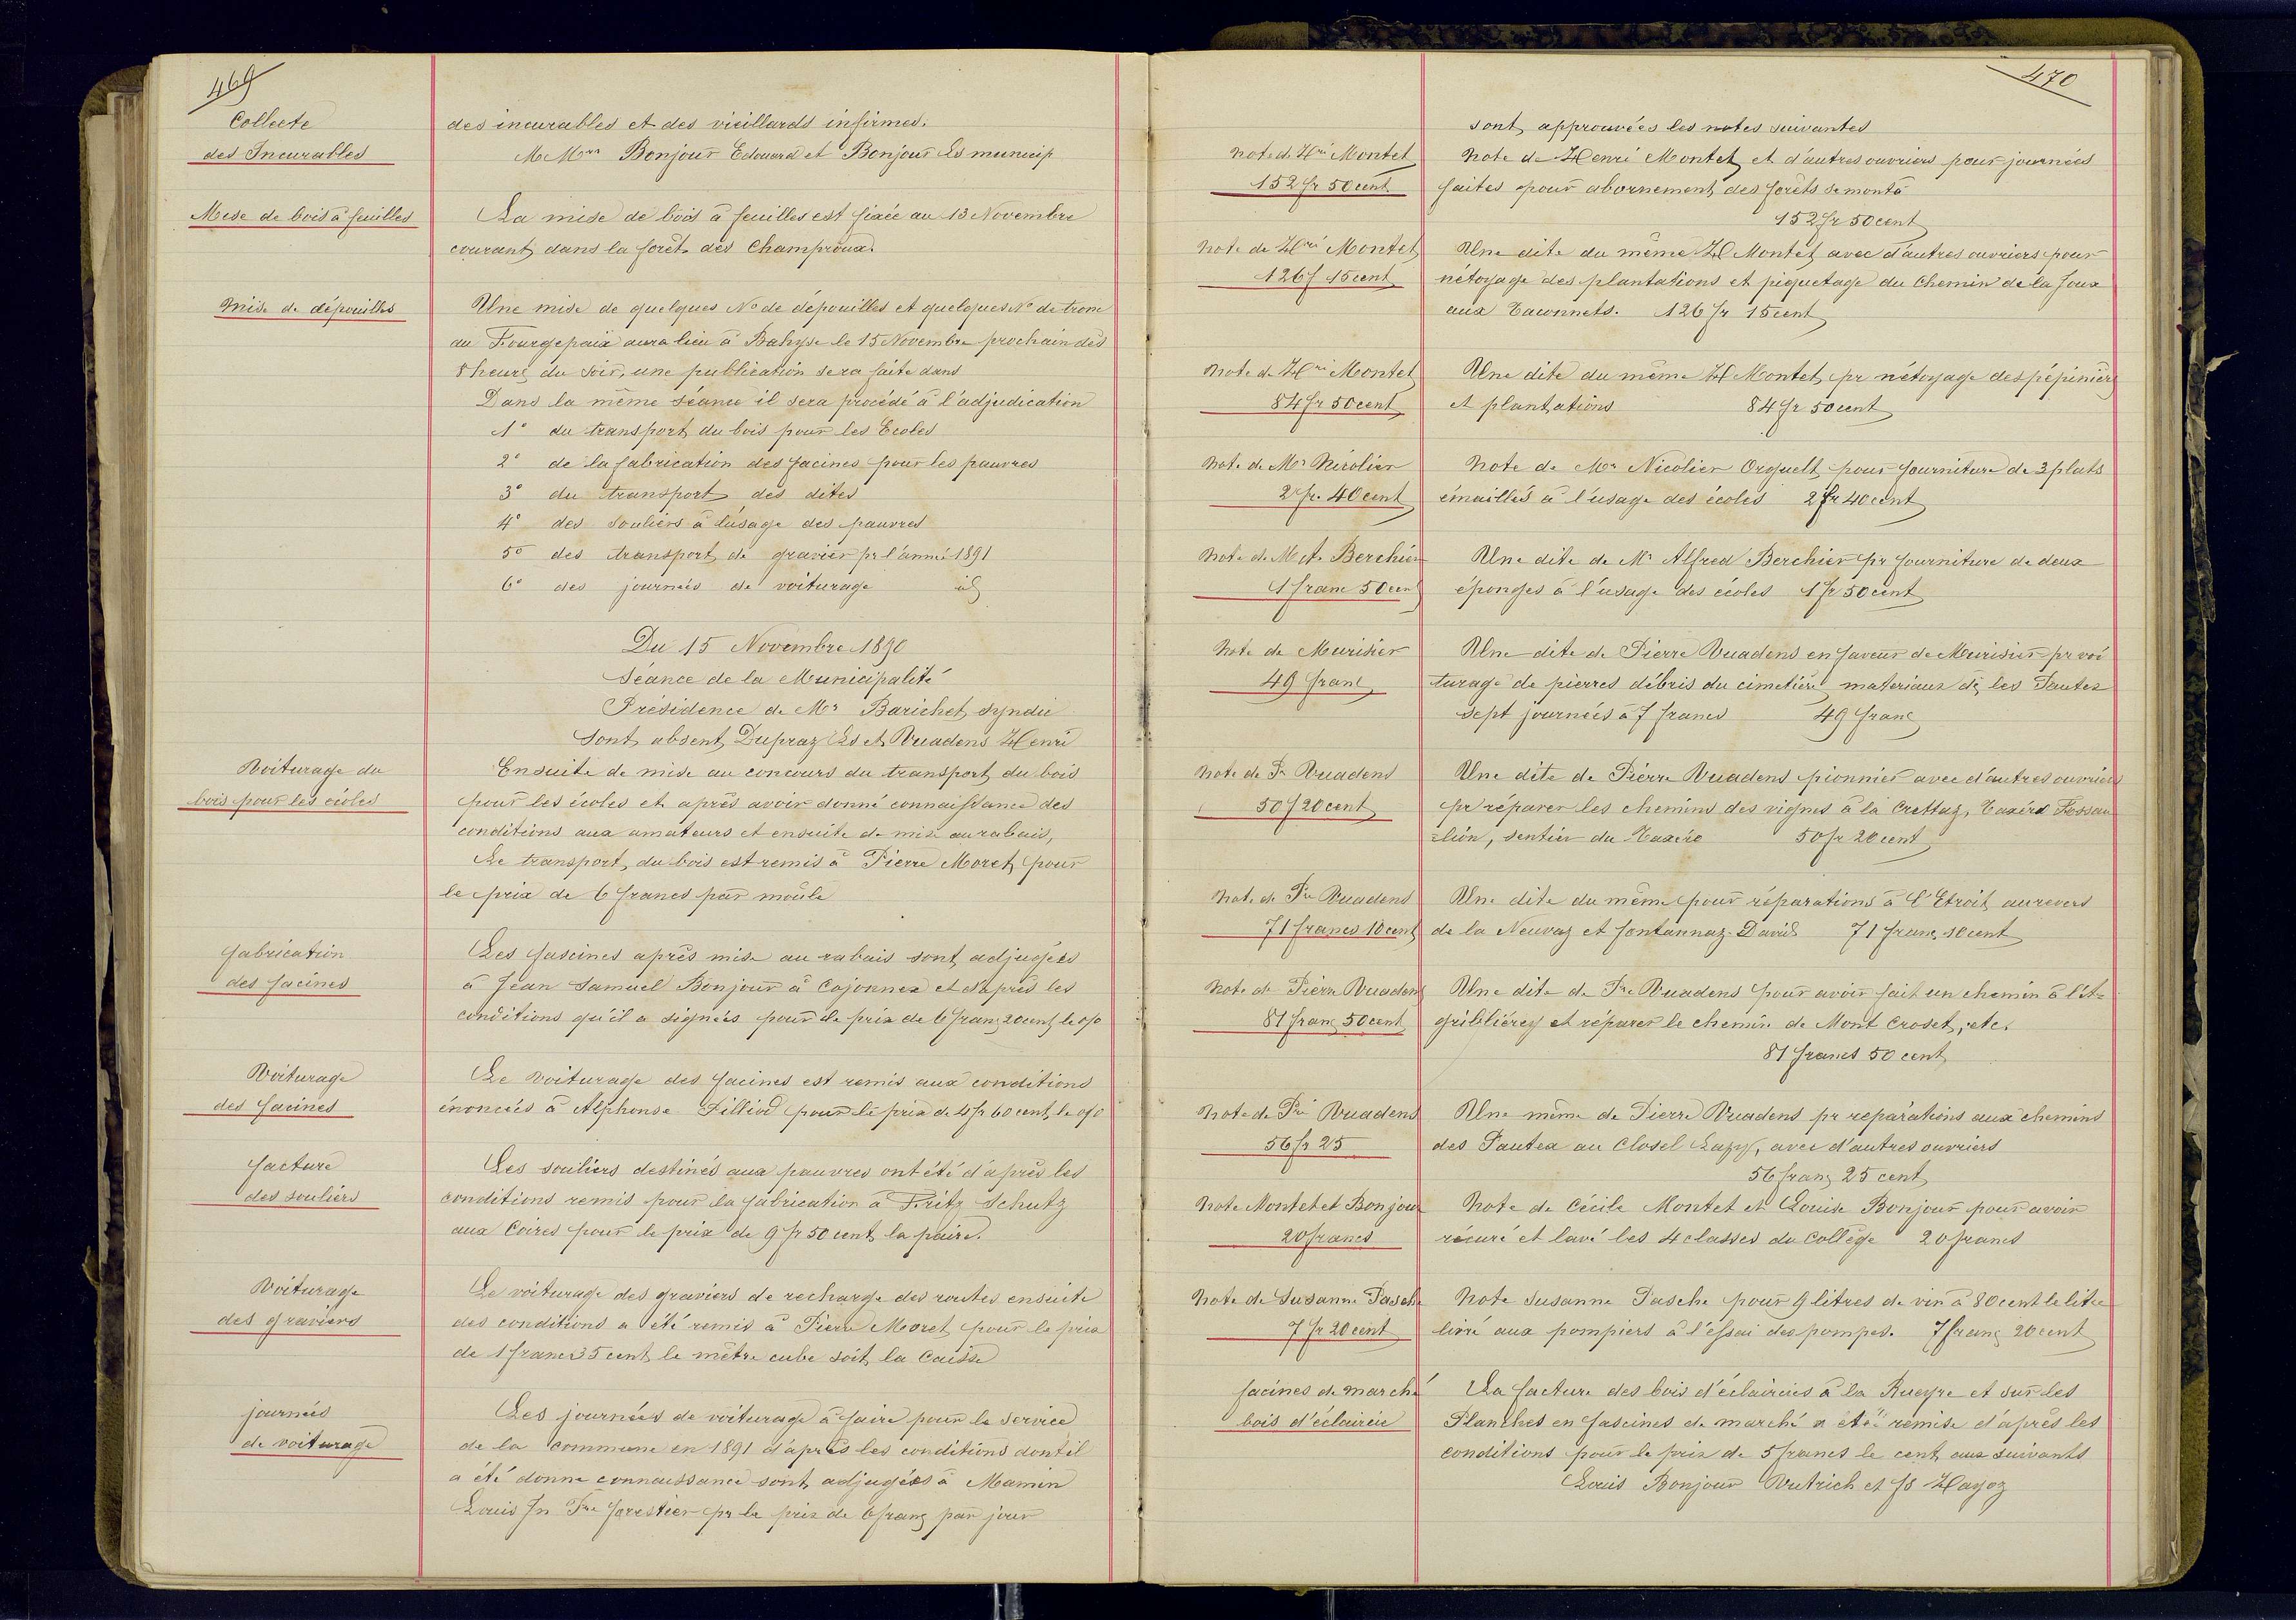 469
Collecte
des Incurables
des incurables et des vieillards infirmes.
MMrs Bonjour Edouard et Bonjour Ls municip
Mise de bois à feuilles
La mise de bois à feuilles est fixée au 13 Novembre
courant dans la forêt des Champroux.
Mise de dépouilles
Une mise de quelques No de dépouilles et quelques No de tronc
au Fourgepaix aura lieu à Bahyse le 15 Novembre prochain dès
8 heures du soir, une publication sera faite dans
Dans la même séance il sera procédé à l'adjudication
1° du transport du bois pour les Ecoles
2° de la fabrication des facines pour les pauvres
3° du transport des dites
4° des souliers à l'usage des pauvres
5° des transport de gravier pr l'année 1891
6° des journées de voiturage id
Du 15 Novembre 1890
Séance de la Municipalité
Présidence de Mr Barichet syndic
Sont absent Dupraz Ls et Vuadens Henri
Voiturage du
bois pour les écoles
Ensuite de mise au concours du transport du bois
pour les écoles et après avoir donné connaissance des
conditions aux amateurs et ensuite de mise au rabais,
Le transport du bois est remis à Pierre Moret pour
le prix de 6 francs par moule
fabrication
des facines
Les fascines après mise au rabais sont adjugées
à Jean Samuel Bonjour à Cojonnex et d'après les
conditions qu'il a signées pour le prix de 6 franc 20 cent le o/o
Voiturage
des facines
Le voiturage des facines est remis aux conditions
énoncées à Alphonse Pilliod pour le prix de 4 fr 60 cent le o/o
facture
des souliers
Les souliers destinés aux pauvres ont été d'après les
conditions remis pour la fabrication à Fritz Schutz
aux Coires pour le prix de 9 fr 50 cent la paire.
Voiturage
des graviers
Le voiturage des graviers de recharge des routes ensuite
des conditions a été remis à Pierre Moret pour le prix
de 1 franc 35 cent le mètre cube soit la Caisse
journées
de voiturage
Les journées de voiturage à faire pour le service
de la commune en 1891 d'après les conditions dont il
a été donné connaissance sont adjugées à Mamin
Louis Jn Pre forestier pr le prix de 6 franc par jour
470
sont approuvées les notes suivantes
Note de Hri Montet
152 fr 50 cent
Note de Henri Montet et d'autres ouvriers pour journées
faites pour abornement des forêts se monta
152 fr 50 cent
Note de Hri Montet
126 f 15 cent
Une dite du même H Montet avec d'autres ouvriers pour
nétoyage des plantations et piquetage du Chemin de la Joux
aux Taconnets. 126 fr 15 cent
Note de Hri Montet
84 fr 50 cent
Une dite du même H Montet pr nétoyage des pépinières
et plantations 84 fr 50 cent
Note de Mr Nicolier
2 fr. 40 cent
Note de Mr Nicolier pour fourniture de 3 plats
émaillés à l'usage des écoles 2 fr 40 cent
Note de M A. Berchier
1 franc 50 cent
Une dite de Mr Alfred Berchier pr fourniture de deux
éponges à l'usage des écoles 1 fr 50 cent
Note de Meurisier
49 franc
Une dite de Pierre Vuadens en faveur de Meurisier pr voi
turage de pierres débris du cimetière materiaux ds les Pautex
sept journées à 7 francs 49 franc
Note de Pr Vuadens
50 f 20 cent
Une dite de Pierre Vuadens pionnier avec d'autres ouvriers
pr réparer les chemins des vignes à la Crettaz, Taxéré Fossau
=lion, sentier du Taxéré 50 fr 20 cent
Note de Pre Vuadens
71 francs 10 cent
Une dite du même pour réparations à l'Etroit au revers
de la Neuvaz et fontannaz-David 71 franc 10 cent
Note de Pierre Vuadens
81 franc 50 cent
Une dite de Pre Vuadens pour avoir fait un chemin à l'A=
gribliérey et réparer le chemin de Mont Croset, etc.
81 francs 50 cent
Note de Pre Vuadens
56 fr 25
Une même de Pierre Vuadens pr reparations aux chemins
des Pautex au Closel Luzy, avec d'autres ouvriers
56 franc 25 cent
Note Montet et Bonjour
20 francs
Note de Cécile Montet et Louise Bonjour pour avoir
récuré et lavé les 4 classes du Collège 20 francs
Note de Susanne Pasche
7 fr 20 cent
Note Susanne Pasche pour 9 litres de vin à 80 cent le litre
livré aux pompiers à l'essai des pompes. 7 franc 20 cent
facines de marché
bois d'éclaircie
La facture des bois d'éclaircies à la Rueyre et sur les
Planches en fascines de marché a été remise d'après les
conditions pour le prix de 5 francs le cent aux suivants
Louis Bonjour Vutrich et fs Hagoz